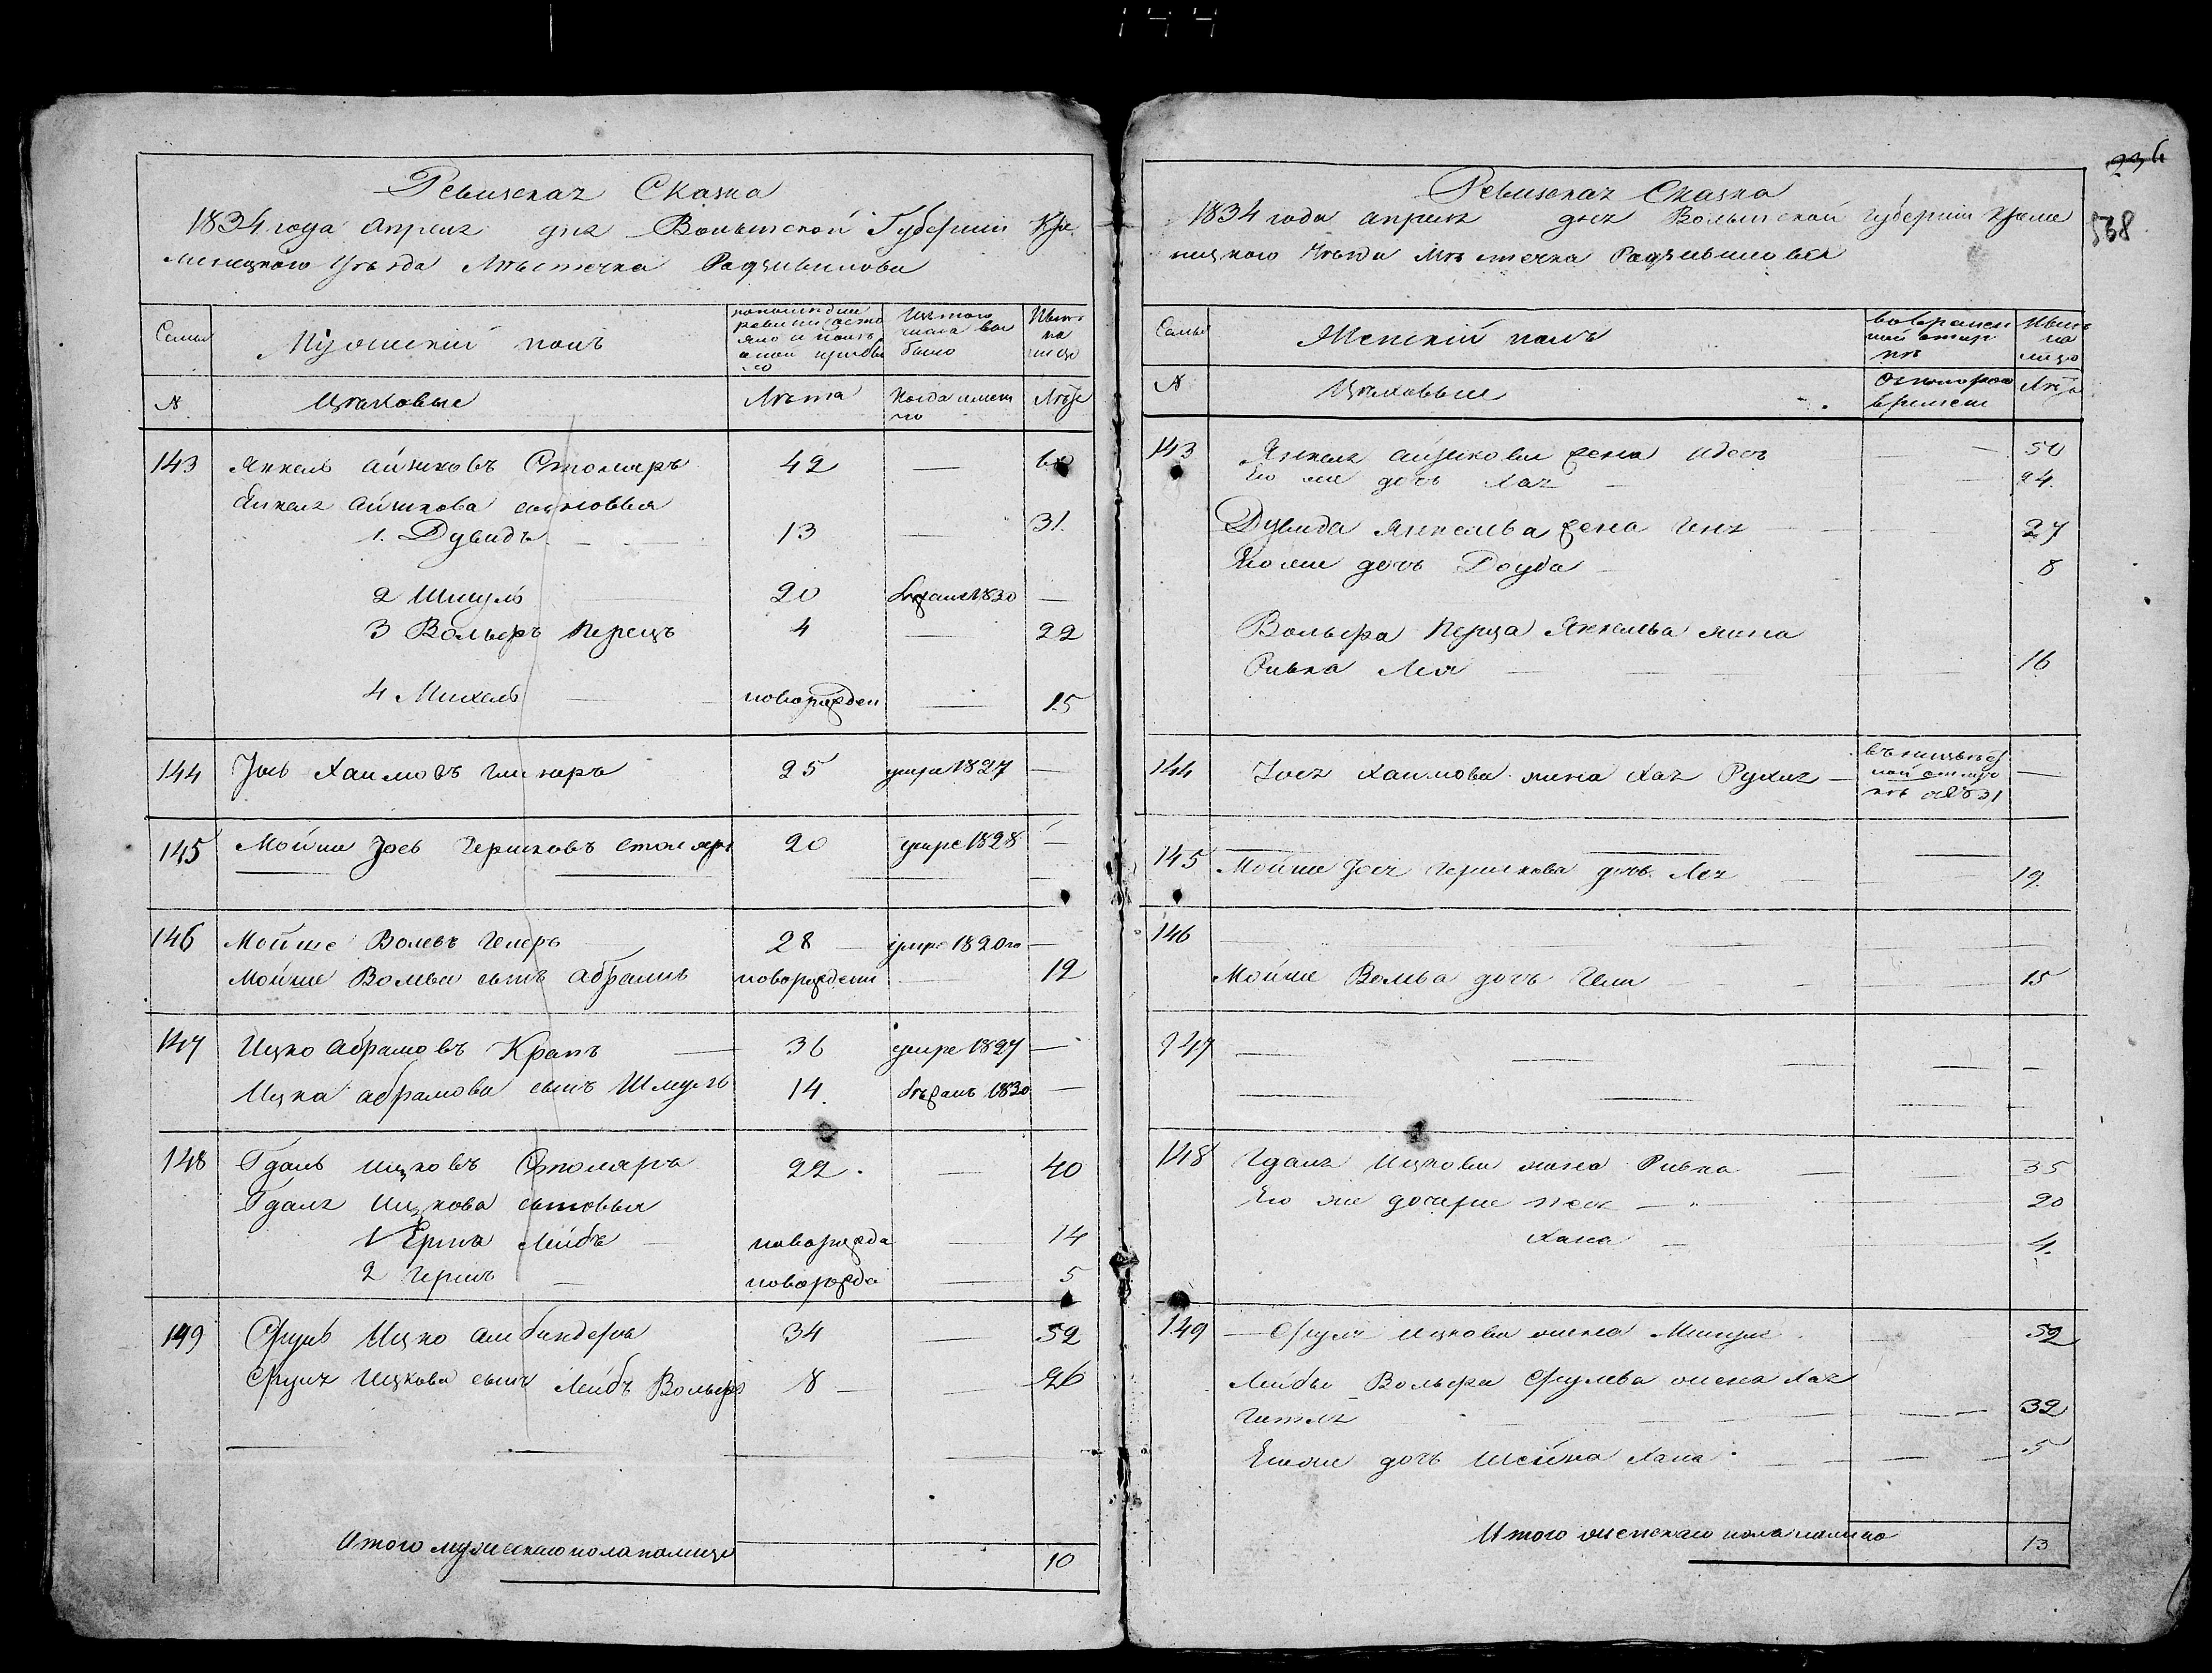 144
Ревизская Сказка
1834 года Апреля дня Волынской Губернии Кре
менецкого Уѣзда Мѣстечка Радзивилова
Семьи
Мужеский полъ
по последней
ревизіи состо
яло и послѣ
оной прибы
ло
Изъ того
числа вы
было
Нынѣ
на
лицо
№
Цеховые
Лѣта
Когда имен
но
Лѣта
143 Янкель Айзиковъ Столяръ 42 — 60
Янкеля Айзикова сыновья
1. Дувидъ — 13 — 31.
2 Шмуль 20 1830 —
3 Вольфъ Перецъ 4 — 22
4 Михель — новорожден — 15
144 Іось Хаимовъ 25 умре 1827 —
145 Мойше Іось Гершковъ столяръ 20 умре 1828 —
146 Мойше Волевъ 28 — умре 1820го —
Мойше Волева сынъ Абрамъ новорожден — 12
147 Ицко Абрамовъ Крапъ — 36 умре 1827 —
Ицка Абрамова сынъ Шмуль 14. 1830 —
148 Гдаль Ицковъ Столяръ 22. — 40
Гдаля Ицкова сыновья
1 Лейбъ — новорожде — 14
2 Гершъ — новорожде — 5
149 Сруль Ицко 34 — 52
Сруля Ицкова сынъ Лейбъ Вольфъ 8 — — 26
Итого мужескаго пола налицо 10
236
538
Ревизская Сказка
1834 года Апреля дня Волынской Губерніи Креме
ницкого Уѣзда Мѣстечка Радзивилова
Семьи
Женскій полъ
во времен
ной отлуч
кѣ
Нынѣ
на
лицо
№
Цеховые
Съ котораго
времени
Лѣта
143 Янкеля Айзикова жена — 50
Его же дочь Хая — — 24.
Дувида Янкелева жена Геня — 27
Его же дочь Доуба — 8
Вольфа Перца Янкелева жена
Ривка Лея — 16
144 Іося Хаимова жена Хая Рухля —
145 Мойше Іося Гершкова дочь Лея — 19.
146 —
Мойше Волева дочь — 15
147 — — — —
148 Гдаля Ицкова жена Ривка — — 35
Его же дочери — 20
Хана — 4.
149 — Сруля Ицкова жена — 52
Лейбы Вольфа Срулева жена Хая
Гитля — 32
Его же дочь Шейна Хана — 5
Итого женскаго пола налицо 13